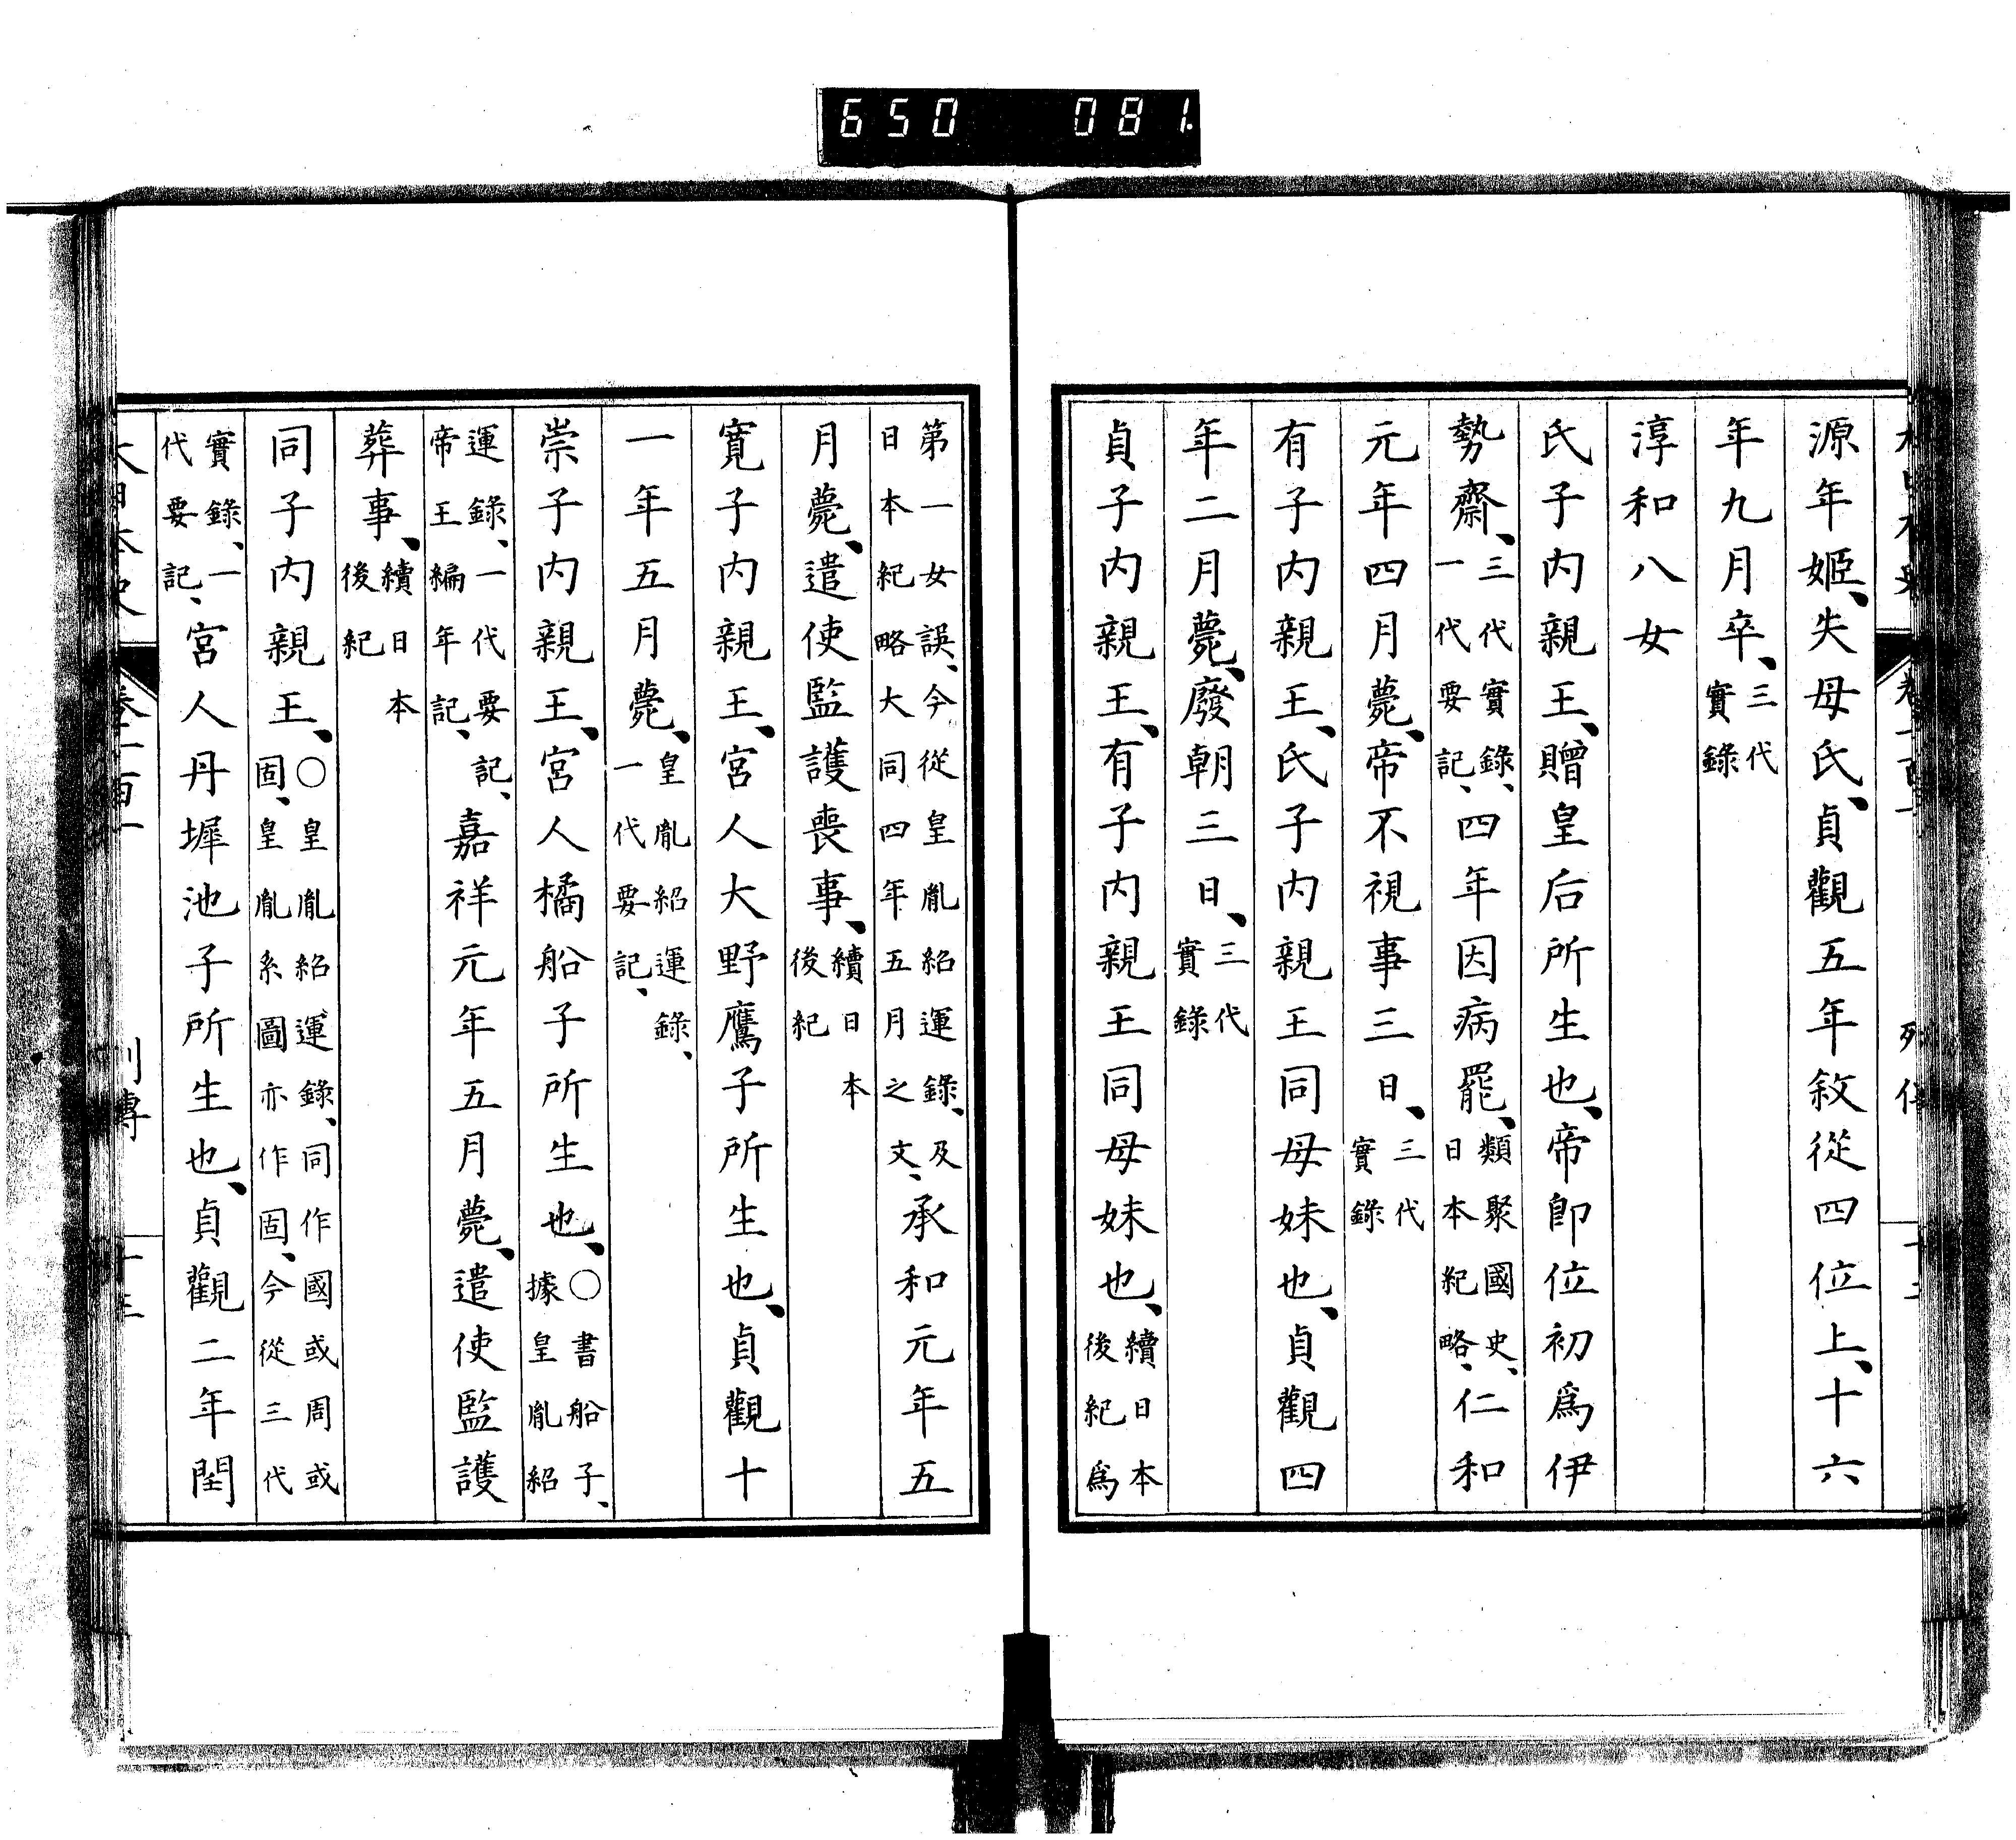 650 081
源年姬、失母氏、貞觀五年敘從四位上、十六
年九月卒、三代實錄
淳和八女
氏子内親王、贈皇后所生也、帝卽位初爲伊
勢齋、三代實錄、一代要記、四年因病罷、類聚國史、日本紀略、仁和
元年四月薨、帝不視事三日、三代實錄
有子内親王、氏子内親王同母妹也、貞觀四
年二月薨、廢朝三日、三代實錄
貞子内親王、有子内親王同母妹也、續日本後紀爲
第一女誤、今從皇胤紹運錄、及日本紀略大同四年五月之文、承和元年五
月薨、遣使監護喪事、續日本後紀
寬子内親王、宮人大野鷹子所生也、貞觀十
一年五月薨、皇胤紹運錄、一代要記、
崇子内親王、宮人橘船子所生也、○書船子、據皇胤紹
運錄、一代要記、帝王編年記、嘉祥元年五月薨、遣使監護
葬事、續日本後紀
同子内親王、○皇胤紹運錄、同作國或周或固、皇胤系圖亦作固、今從三代
實錄、一代要記、宮人丹墀池子所生也、貞觀二年閏
大日本史 卷一百一 列傳 十三